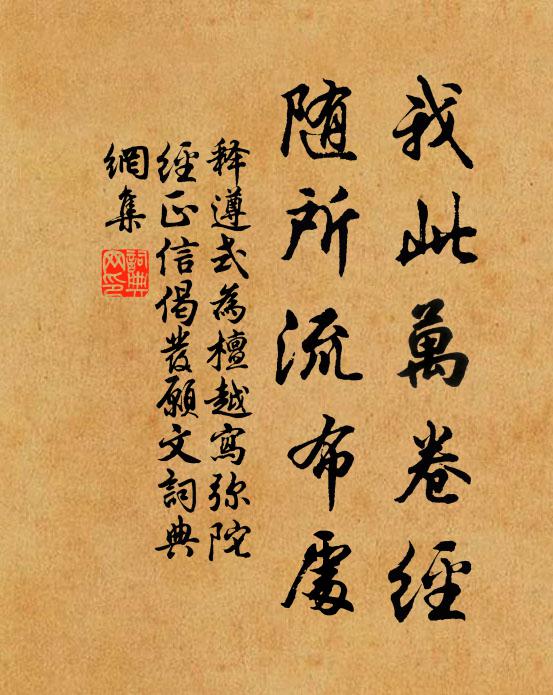 我此萬卷經
隨所流布處
释遵式為檀越寫弥陀
經正信偈發願文詞典
網集
詞典
网印